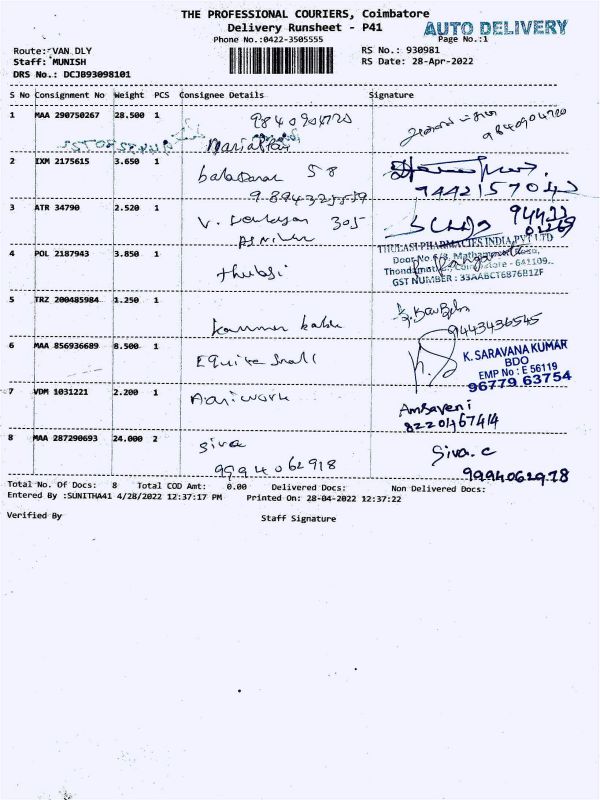 THE PROFESSIONAL COURIERS, Coimbatore
Delivery Runsheet - P41
AUTO DELIVERY
Phone No.:0422-3505555
Page No.:1
Route: VAN DLY
RS No.: 930981
Staff: MUNISH
RS Date: 28-Apr-2022
DRS No.: DCJB93098101
S No Consignment No Weight PCS Consignee Details Signature
1 MAA 290750267 28.500 1
9840904720
2 IXM 2175615 3.650 1
58
3 ATR 34790 2.520 1
V. 305
THULASI PHARMACIES INDIA PVT LTD
4 POL 2187943 3.850 1
GST NUMBER : 33AABCT6876B1ZF
5 TRZ 200485984 1.250 1
9443436545
6 MAA 856936689 8.500 1
Equita Small
K. SARAVANA KUMAR
BDO
EMP No : E 56119
96779 63754
7 VDM 1031221 2.200 1
Aariwork
Ambaveni
8220467414
8 MAA 287290693 24.000 2
Siva
Siva. C
9994062918
9994062978
Total No. Of Docs: 8 Total COD Amt: 0.00 Delivered Docs: Non Delivered Docs:
Entered By :SUNITHA41 4/28/2022 12:37:17 PM Printed On: 28-04-2022 12:37:22
Verified By
Staff Signature